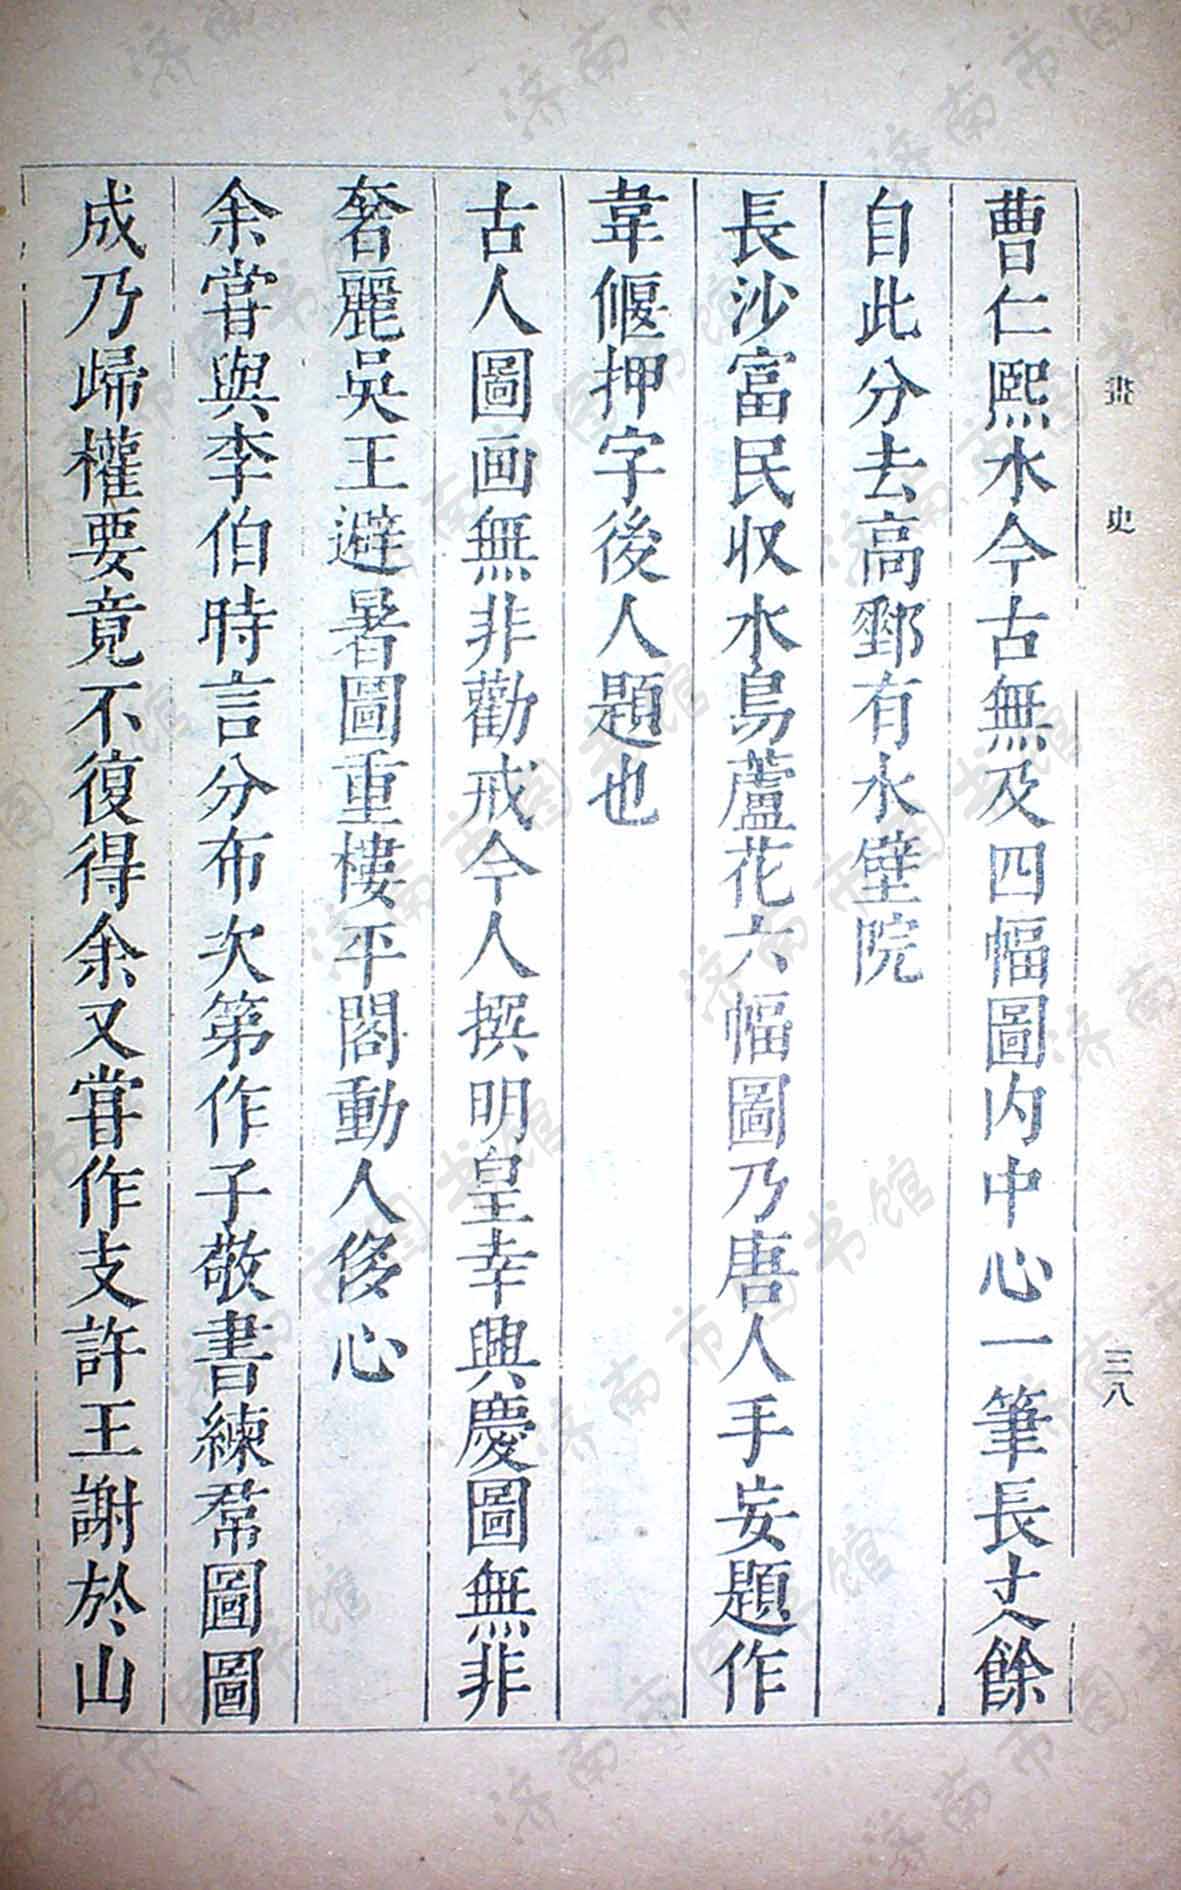 畫史
三八
曹仁熙水今古無及四幅圖内中心一筆長丈餘
自此分去高郵有水壁院
長沙富民収水鳥蘆花六幅圖乃唐人手妄題作
韋偃押字後人題也
古人圖画無非勸戒今人撰明皇幸興慶圖無非
奢麗吳王避暑圖重樓平閣動人侈心
余甞與李伯時言分布次第作子敬書練帬圖圖
成乃歸權要竟不復得余又甞作支許王謝於山
济南市图书馆